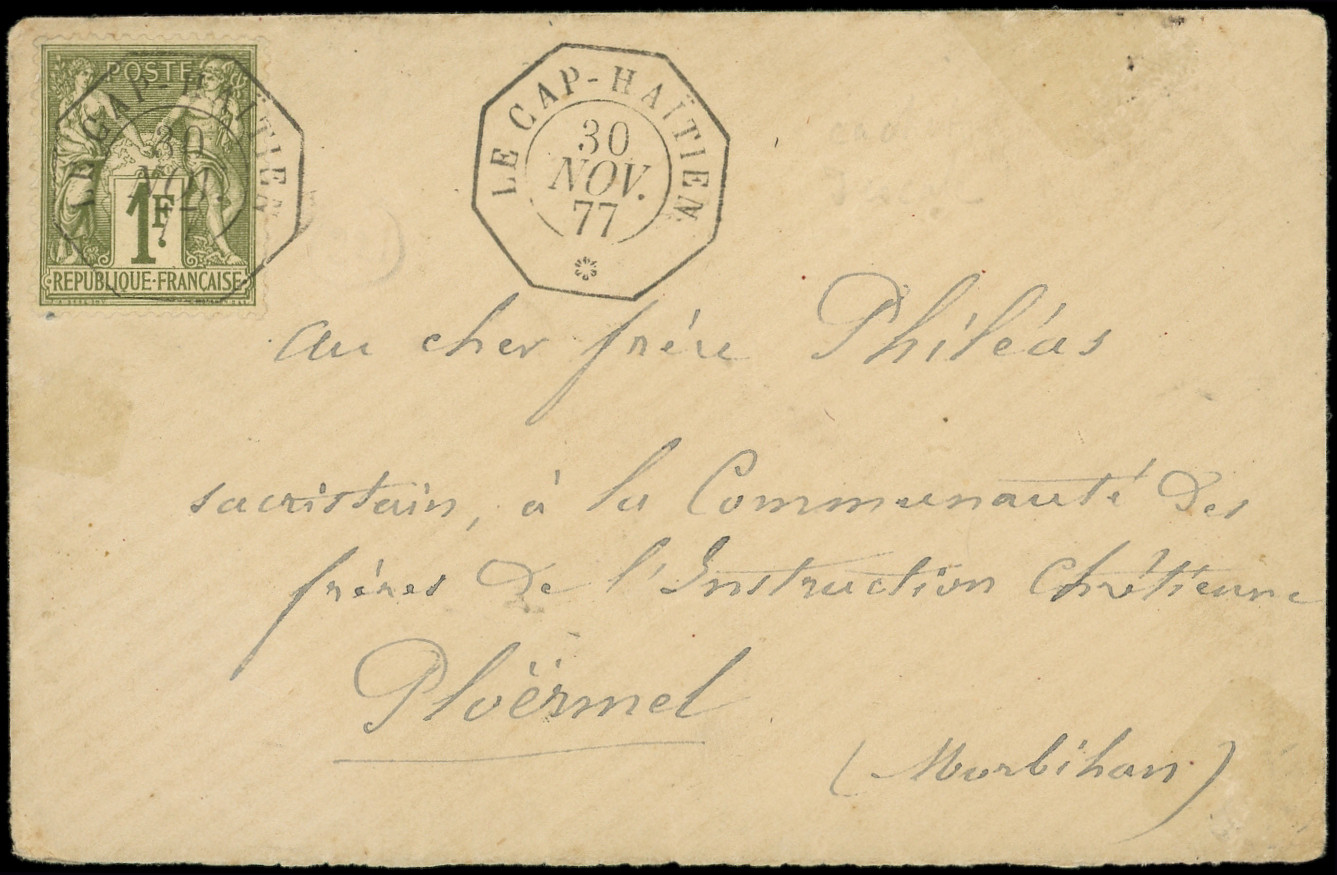 POSTE
1F
REPUBLIQUE·FRANÇAISE
LE CAP-HAÏTIEN
30
NOV.
77
LE CAP-HAÏTIEN
30
NOV.
77
au cher frére Philéas
sacristain, à la Communauté des
fréres de l'Instruction Chrétienne
Ploërmel
(Morbihan)